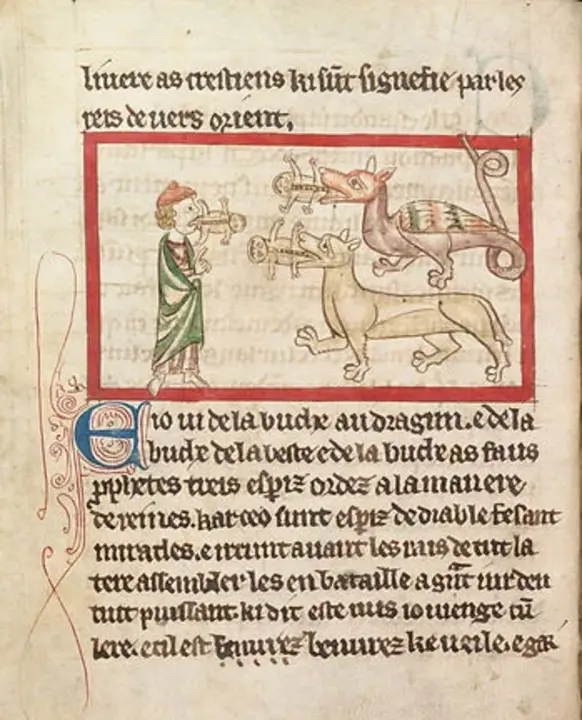 liuere as crestiens ki sūt signefie par les
reis de uers orient.
E io ui de la buche au dragun. e de la
buche de la beste e de la buche as faus
prophetes treis espiz ordez a la manere
de reines. kar ceo sunt espiz de diable fesant
miracles. e irrunt auant les rais de tut la
tere assembler les en bataille a gūt iur deu
tut puissant. ki dit este uus io uienge cū
lere. e cil est benurez benurez ke ueile. e gar